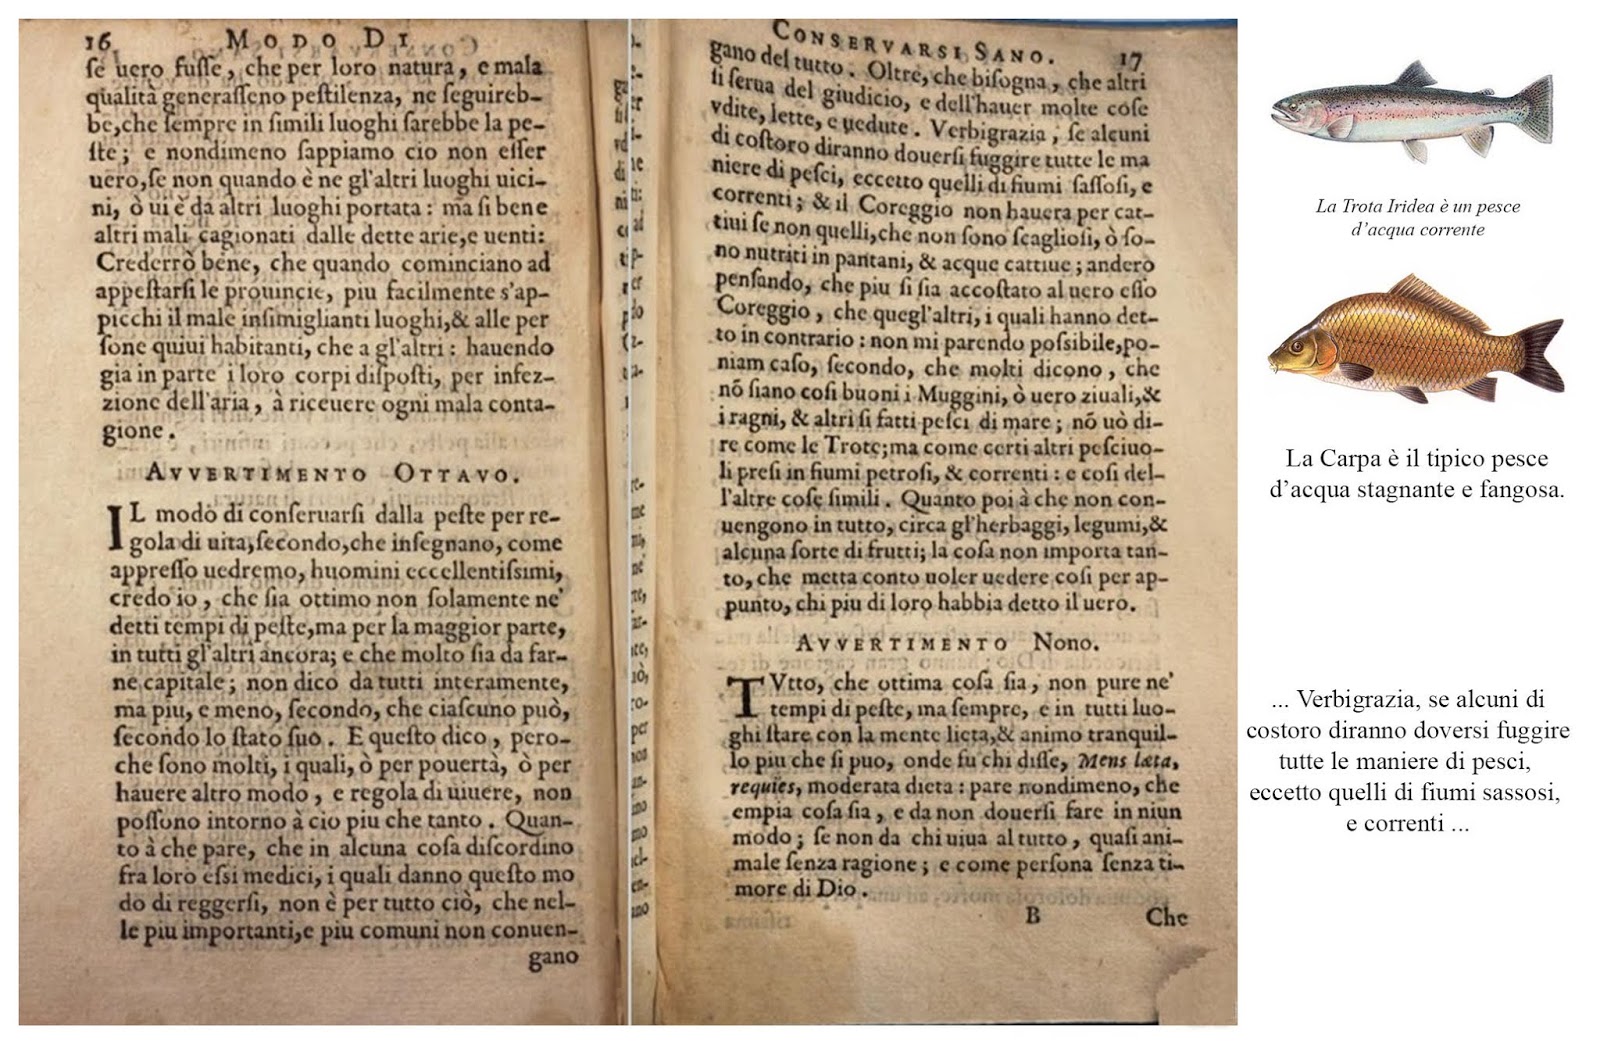 16 MODO DI
ſe uero fuſſe, che per loro natura, e mala
qualità generaſſeno peſtilenza, ne ſeguireb-
be, che ſempre in ſimili luoghi ſarebbe la pe-
ſte; e nondimeno ſappiamo cio non eſſer
uero, ſe non quando è ne gl'altri luoghi uici-
ni, ò ui è da altri luoghi portata: ma ſi bene
altri mali cagionati dalle dette arie, e uenti:
Crederrò bene, che quando cominciano ad
appeſtarſi le prouincie, piu facilmente s'ap-
picchi il male inſimiglianti luoghi, & alle per
ſone quiui habitanti, che a gl'altri: hauendo
gia in parte i loro corpi diſpoſti, per infez-
zione dell'aria, à riceuere ogni mala conta-
gione.
AVVERTIMENTO OTTAVO.
IL modo di conſeruarſi dalla peſte per re-
gola di uita, ſecondo, che inſegnano, come
appreſſo uedremo, huomini eccellentiſsimi,
credo io, che ſia ottimo non ſolamente ne'
detti tempi di peſte, ma per la maggior parte,
in tutti gl'altri ancora; e che molto ſia da far-
ne capitale; non dico da tutti interamente,
ma piu, e meno, ſecondo, che ciaſcuno può,
ſecondo lo ſtato ſuo. E queſto dico, pero-
che ſono molti, i quali, ò per pouertà, ò per
hauere altro modo, e regola di uiuere, non
poſſono intorno à cio piu che tanto. Quan-
to à che pare, che in alcuna coſa diſcordino
fra loro eſsi medici, i quali danno queſto mo
do di reggerſi, non è per tutto ciò, che nel-
le piu importanti, e piu comuni non conuen-
gano
CONSERVARSI SANO. 17
gano del tutto. Oltre, che biſogna, che altri
ſi ſerua del giudicio, e dell'hauer molte coſe
vdite, lette, e uedute. Verbigrazia, ſe alcuni
di coſtoro diranno douerſi fuggire tutte le ma
niere di peſci, eccetto quelli di fiumi ſaſſoſi, e
correnti; & il Coreggio non hauera per cat-
tiui ſe non quelli, che non ſono ſcaglioſi, ò ſo-
no nutriti in pantani, & acque cattiue; anderò
penſando, che piu ſi ſia accoſtato al uero eſſo
Coreggio, che quegl'altri, i quali hanno det-
to in contrario: non mi parendo poſsibile, po-
niam caſo, ſecondo, che molti dicono, che
nõ ſiano coſi buoni i Muggini, ò uero ziuali, &
i ragni, & altri ſi fatti peſci di mare; nõ uò di-
re come le Trote; ma come certi altri peſciuo-
li preſi in fiumi petroſi, & correnti: e coſi del-
l'altre coſe ſimili. Quanto poi à che non con-
uengono in tutto, circa gl'herbaggi, legumi, &
alcuna ſorte di frutti; la coſa non importa tan-
to, che metta conto uoler uedere coſi per ap-
punto, chi piu di loro habbia detto il uero.
AVVERTIMENTO Nono.
TVtto, che ottima coſa ſia, non pure ne'
tempi di peſte, ma ſempre, e in tutti luo-
ghi ſtare con la mente lieta, & animo tranquil-
lo piu che ſi puo, onde fu chi diſſe, Mens læta,
requies, moderata dieta: pare nondimeno, che
empia coſa ſia, e da non douerſi fare in niun
modo; ſe non da chi uiua al tutto, quaſi ani-
male ſenza ragione; e come perſona ſenza ti-
more di Dio.
B Che
La Trota Iridea è un pesce
d'acqua corrente
La Carpa è il tipico pesce
d'acqua stagnante e fangosa.
... Verbigrazia, se alcuni di
costoro diranno doversi fuggire
tutte le maniere di pesci,
eccetto quelli di fiumi sassosi,
e correnti ...